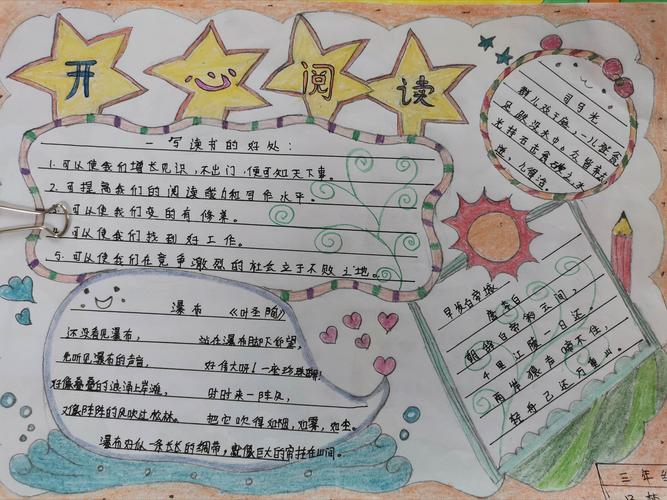 开心阅读
一写读书的好处:
1.可以使我们增长见识,不出门,便可知天下事。
2.可提高我们的阅读能力和写作水平。
可以使我们变的有修养。
可以使我们找到好工作。
5.可以使我们在竞争激烈的社会立于不败之地。
司马光
群儿戏于庭,一儿登瓮
足跌没水中,众皆弃去
光持石击瓮破之水
迸,儿得活。
瀑布 《叶圣陶》
还没看见瀑布,
先听见瀑布的声音,
好像叠叠的浪涌上岸滩,
又像阵阵的风吹过松林。
站在瀑布脚下仰望,
好伟大呀!一座珍珠屏!
时时来一阵风,
把它吹得如烟,如雾,如尘。
瀑布好似一条长长的绸带,就像巨大的帘挂在山间。
早发白帝城
唐李白
朝辞白帝彩云间,
千里江陵一日还。
两岸猿声啼不住,
轻舟已过万重山。
三年